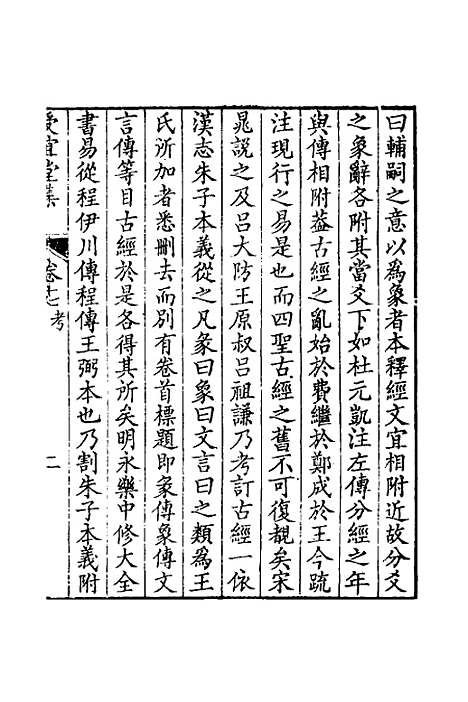 曰輔嗣之意以為象者本釋經文宜相附近故分爻
之象辭各附其當爻下如杜元凱注左傳分經之年
與傳相附葢古經之亂始於費繼於鄭成於王今䟽
注現行之易是也而四聖古經之舊不可復覩矣宋
晁說之及呂大防王原叔呂祖謙乃考訂古經一依
漢志朱子本義從之凡彖曰象曰文言曰之類為王
氏所加者悉刪去而別有卷首標題即彖傳象傳文
言傳等目古經於是各得其所矣明永樂中修大全
書易從程伊川傳程傳王弼本也乃割朱子本義附
受宜堂集
考
二